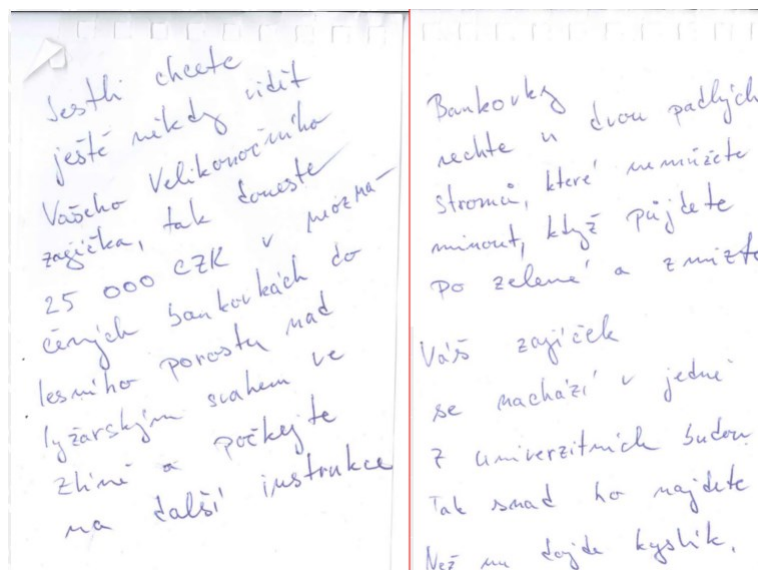 Jestli chcete
ještě někdy vidět
Vašeho Velikonočního
zajíčka, tak doneste
25 000 CZK v neozna-
čených bankovkách do
lesního porostu nad
lyžařským svahem ve
Zlíně a počkejte
na další instrukce
Bankovky
nechte u dvou padlých
stromů, které nemůžete
minout, když půjdete
po zelené a zmizte
Váš zajíček
se nachází v jedné
z univerzitních budov
Tak snad ho najdete
Než mu dojde kyslík.